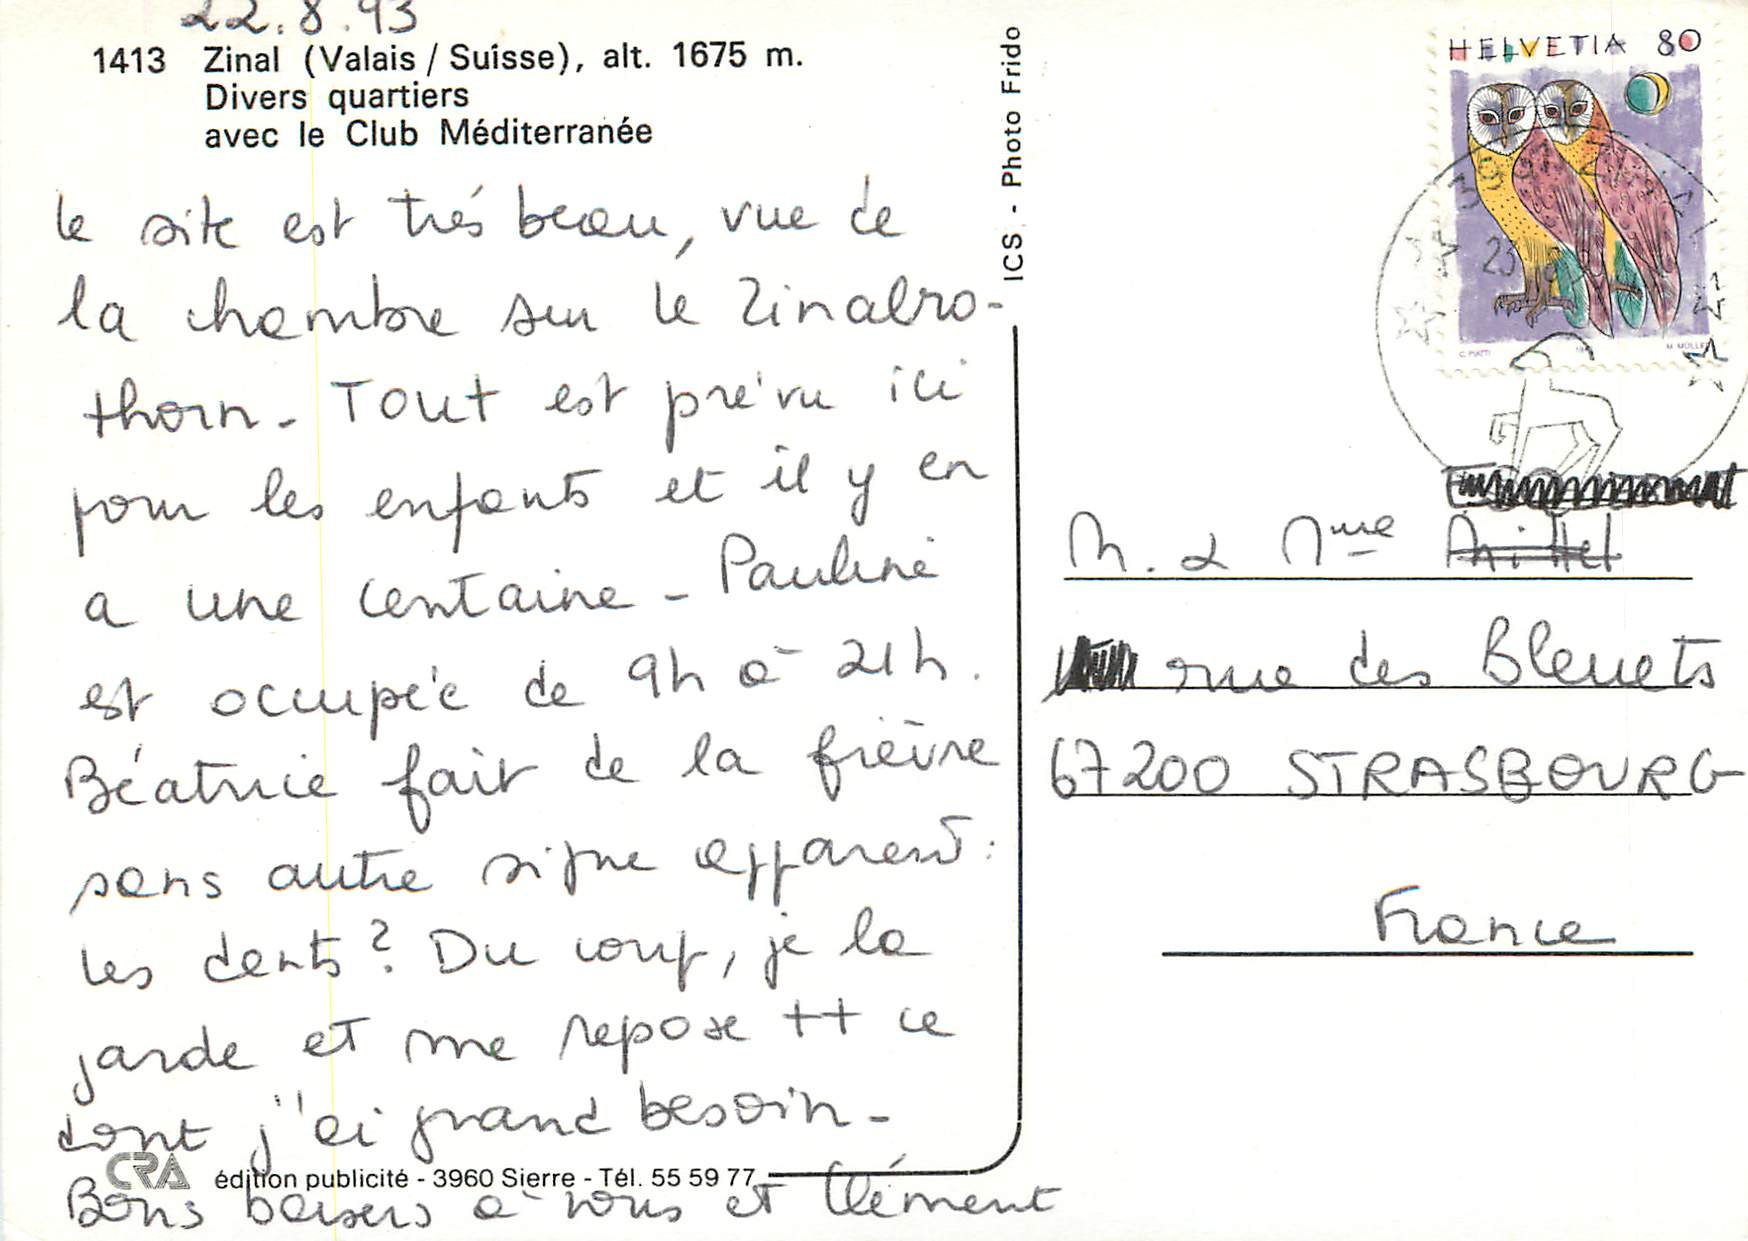 22.8.93
1413 Zinal (Valais / Suisse), alt. 1675 m.
Divers quartiers
avec le Club Méditerranée
le site est trés beau, vue de
la chambre sur le Zinalro-
thorn - Tout est prévu ici
pour les enfants et il y en
a une centaine - Pauline
est occupée de 9h à 21h.
Béatrice fait de la fièvre
sans autre signe apparent :
les dents ? Du coup, je la
garde et me repose ++ ce
dont j'ai grand besoin -
CRA édition publicité - 3960 Sierre - Tél. 55 59 77
Bons baisers à vous et Clément
ICS - Photo Frido
HELVETIA 80
C. PIATTI
M. MÜLLER
23
M. & Mme
rue des Bleuets
67200 STRASBOURG
France